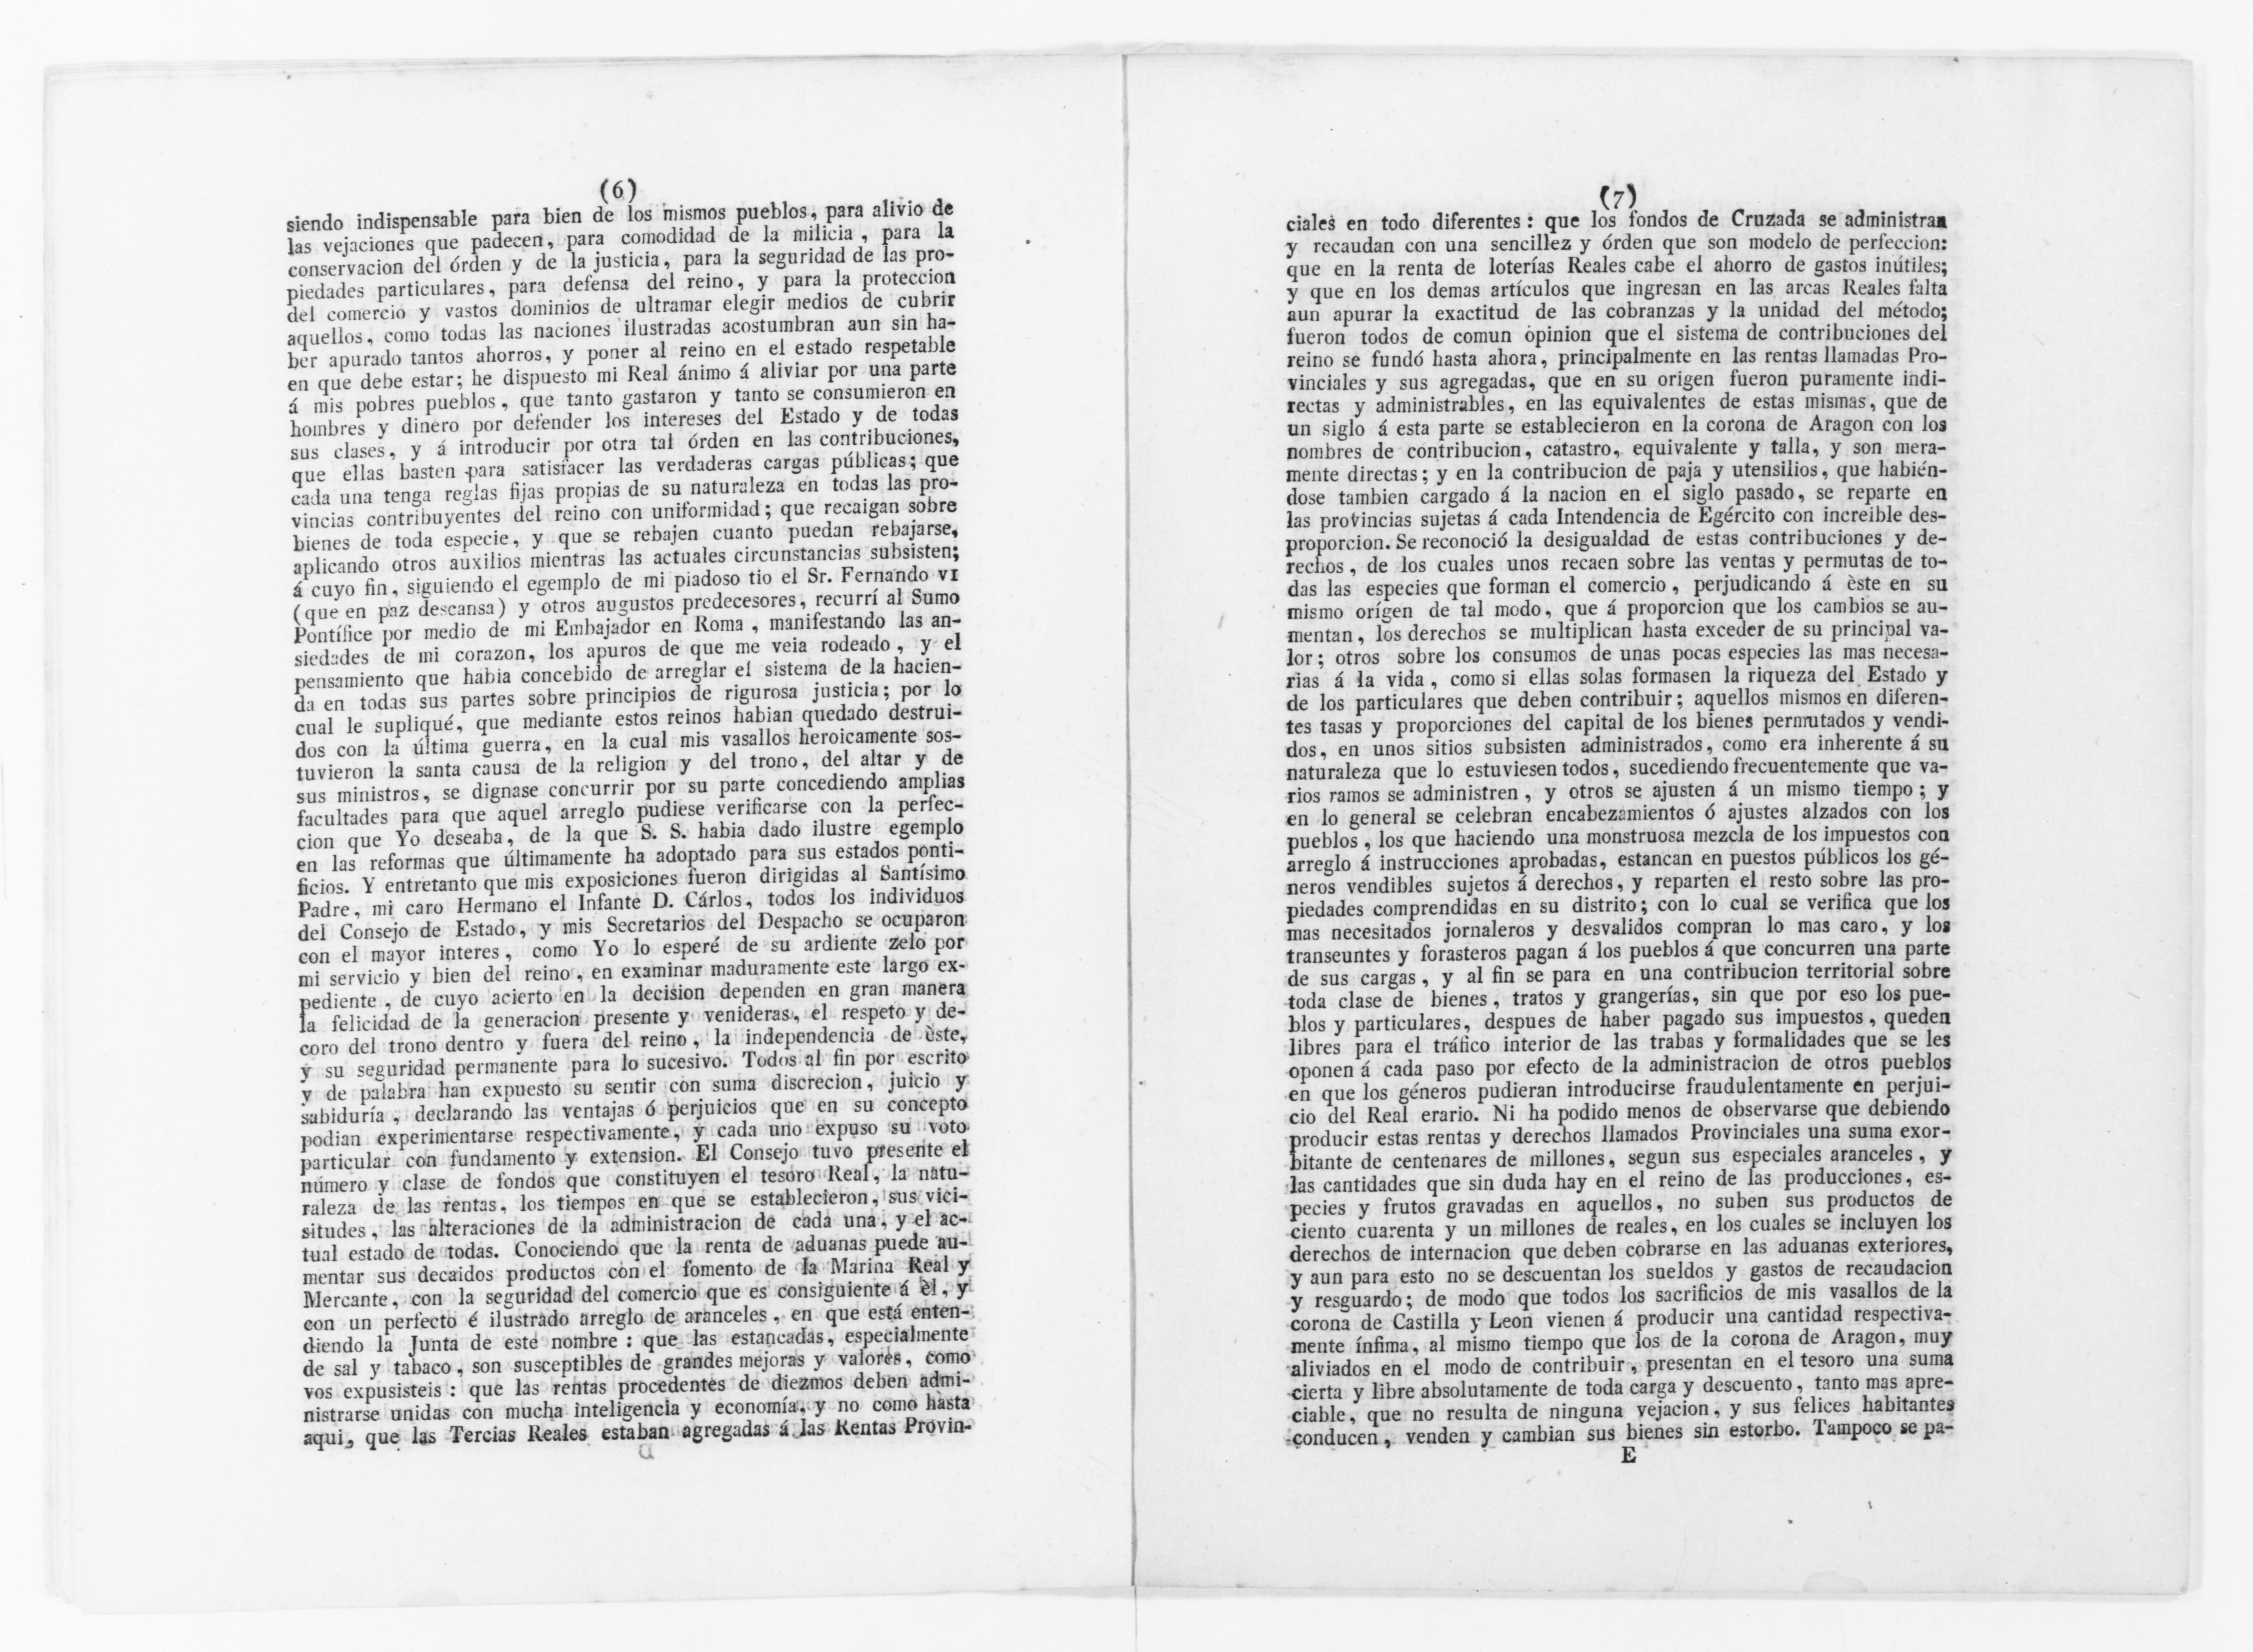 (6)
siendo indispensable para bien de los mismos pueblos, para alivio de
las vejaciones que padecen, para comodidad de la milicia , para la
conservacion del órden y de la justicia, para la seguridad de las pro-
piedades particulares, para defensa del reino, y para la proteccion
del comercio y vastos dominios de ultramar elegir medios de cubrir
aquellos, como todas las naciones ilustradas acostumbran aun sin ha-
ber apurado tantos ahorros, y poner al reino en el estado respetable
en que debe estar; he dispuesto mi Real ánimo á aliviar por una parte
á mis pobres pueblos, que tanto gastaron y tanto se consumieron en
hombres y dinero por defender los intereses del Estado y de todas
sus clases, y á introducir por otra tal órden en las contribuciones,
que ellas basten para satisfacer las verdaderas cargas públicas; que
cada una tenga reglas fijas propias de su naturaleza en todas las pro-
vincias contribuyentes del reino con uniformidad; que recaigan sobre
bienes de toda especie, y que se rebajen cuanto puedan rebajarse,
aplicando otros auxilios mientras las actuales circunstancias subsisten;
á cuyo fin, siguiendo el egemplo de mi piadoso tio el Sr. Fernando VI
(que en paz descansa) y otros augustos predecesores, recurrí al Sumo
Pontífice por medio de mi Embajador en Roma , manifestando las an-
siedades de mi corazon, los apuros de que me veia rodeado, y el
pensamiento que habia concebido de arreglar el sistema de la hacien-
da en todas sus partes sobre principios de rigurosa justicia; por lo
cual le supliqué, que mediante estos reinos habian quedado destrui-
dos con la última guerra, en la cual mis vasallos heroicamente sos-
tuvieron la santa causa de la religion y del trono, del altar y de
sus ministros, se dignase concurrir por su parte concediendo amplias
facultades para que aquel arreglo pudiese verificarse con la perfec-
cion que Yo deseaba, de la que S. S. habia dado ilustre egemplo
en las reformas que últimamente ha adoptado para sus estados ponti-
ficios. Y entretanto que mis exposiciones fueron dirigidas al Santísimo
Padre, mi caro Hermano el Infante D. Cárlos, todos los individuos
del Consejo de Estado, y mis Secretarios del Despacho se ocuparon
con el mayor interes, como Yo lo esperé de su ardiente zelo por
mi servicio y bien del reino, en examinar maduramente este largo ex-
pediente, de cuyo acierto en la decision dependen en gran manera
la felicidad de la generacion presente y venideras, el respeto y de-
coro del trono dentro y fuera del reino, la independencia de èste,
y su seguridad permanente para lo sucesivo. Todos al fin por escrito
y de palabra han expuesto su sentir con suma discrecion, juicio y
sabiduría, declarando las ventajas ó perjuicios que en su concepto
podian experimentarse respectivamente, y cada uno expuso su voto
particular con fundamento y extension. El Consejo tuvo presente el
número y clase de fondos que constituyen el tesoro Real, la natu-
raleza de las rentas, los tiempos en que se establecieron, sus vici-
situdes, las alteraciones de la administracion de cada una, y el ac-
tual estado de todas. Conociendo que la renta de aduanas puede au-
mentar sus decaidos productos con el fomento de la Marina Real y
Mercante, con la seguridad del comercio que es consiguiente á èl, y
con un perfecto é ilustrado arreglo de aranceles, en que está enten-
diendo la Junta de este nombre : que las estancadas, especialmente
de sal y tabaco, son susceptibles de grandes mejoras y valores, como
vos expusisteis : que las rentas procedentes de diezmos deben admi-
nistrarse unidas con mucha inteligencia y economía, y no como hasta
aqui, que las Tercias Reales estaban agregadas á las Rentas Provin-
(7)
ciales en todo diferentes : que los fondos de Cruzada se administran
y recaudan con una sencillez y órden que son modelo de perfeccion:
que en la renta de loterías Reales cabe el ahorro de gastos inútiles;
y que en los demas artículos que ingresan en las arcas Reales falta
aun apurar la exactitud de las cobranzas y la unidad del método;
fueron todos de comun opinion que el sistema de contribuciones del
reino se fundó hasta ahora, principalmente en las rentas llamadas Pro-
vinciales y sus agregadas, que en su origen fueron puramente indi-
rectas y administrables, en las equivalentes de estas mismas, que de
un siglo á esta parte se establecieron en la corona de Aragon con los
nombres de contribucion, catastro, equivalente y talla, y son mera-
mente directas; y en la contribucion de paja y utensilios, que habién-
dose tambien cargado á la nacion en el siglo pasado, se reparte en
las provincias sujetas á cada Intendencia de Egército con increible des-
proporcion. Se reconoció la desigualdad de estas contribuciones y de-
rechos, de los cuales unos recaen sobre las ventas y permutas de to-
das las especies que forman el comercio, perjudicando á èste en su
mismo orígen de tal modo, que á proporcion que los cambios se au-
mentan, los derechos se multiplican hasta exceder de su principal va-
lor; otros sobre los consumos de unas pocas especies las mas necesa-
rias á la vida, como si ellas solas formasen la riqueza del Estado y
de los particulares que deben contribuir; aquellos mismos en diferen-
tes tasas y proporciones del capital de los bienes permutados y vendi-
dos, en unos sitios subsisten administrados, como era inherente á su
naturaleza que lo estuviesen todos, sucediendo frecuentemente que va-
rios ramos se administren, y otros se ajusten á un mismo tiempo; y
en lo general se celebran encabezamientos ó ajustes alzados con los
pueblos, los que haciendo una monstruosa mezcla de los impuestos con
arreglo á instrucciones aprobadas, estancan en puestos públicos los gé-
neros vendibles sujetos á derechos, y reparten el resto sobre las pro-
piedades comprendidas en su distrito; con lo cual se verifica que los
mas necesitados jornaleros y desvalidos compran lo mas caro, y los
transeuntes y forasteros pagan á los pueblos á que concurren una parte
de sus cargas, y al fin se para en una contribucion territorial sobre
toda clase de bienes, tratos y grangerías, sin que por eso los pue-
blos y particulares, despues de haber pagado sus impuestos, queden
libres para el tráfico interior de las trabas y formalidades que se les
oponen á cada paso por efecto de la administracion de otros pueblos
en que los géneros pudieran introducirse fraudulentamente en perjui-
cio del Real erario. Ni ha podido menos de observarse que debiendo
producir estas rentas y derechos llamados Provinciales una suma exor-
bitante de centenares de millones, segun sus especiales aranceles, y
las cantidades que sin duda hay en el reino de las producciones, es-
pecies y frutos gravadas en aquellos, no suben sus productos de
ciento cuarenta y un millones de reales, en los cuales se incluyen los
derechos de internacion que deben cobrarse en las aduanas exteriores,
y aun para esto no se descuentan los sueldos y gastos de recaudacion
y resguardo; de modo que todos los sacrificios de mis vasallos de la
corona de Castilla y Leon vienen á producir una cantidad respectiva-
mente ínfima, al mismo tiempo que los de la corona de Aragon, muy
aliviados en el modo de contribuir, presentan en el tesoro una suma
cierta y libre absolutamente de toda carga y descuento, tanto mas apre-
ciable, que no resulta de ninguna vejacion, y sus felices habitantes
conducen, venden y cambian sus bienes sin estorbo. Tampoco se pa-
E